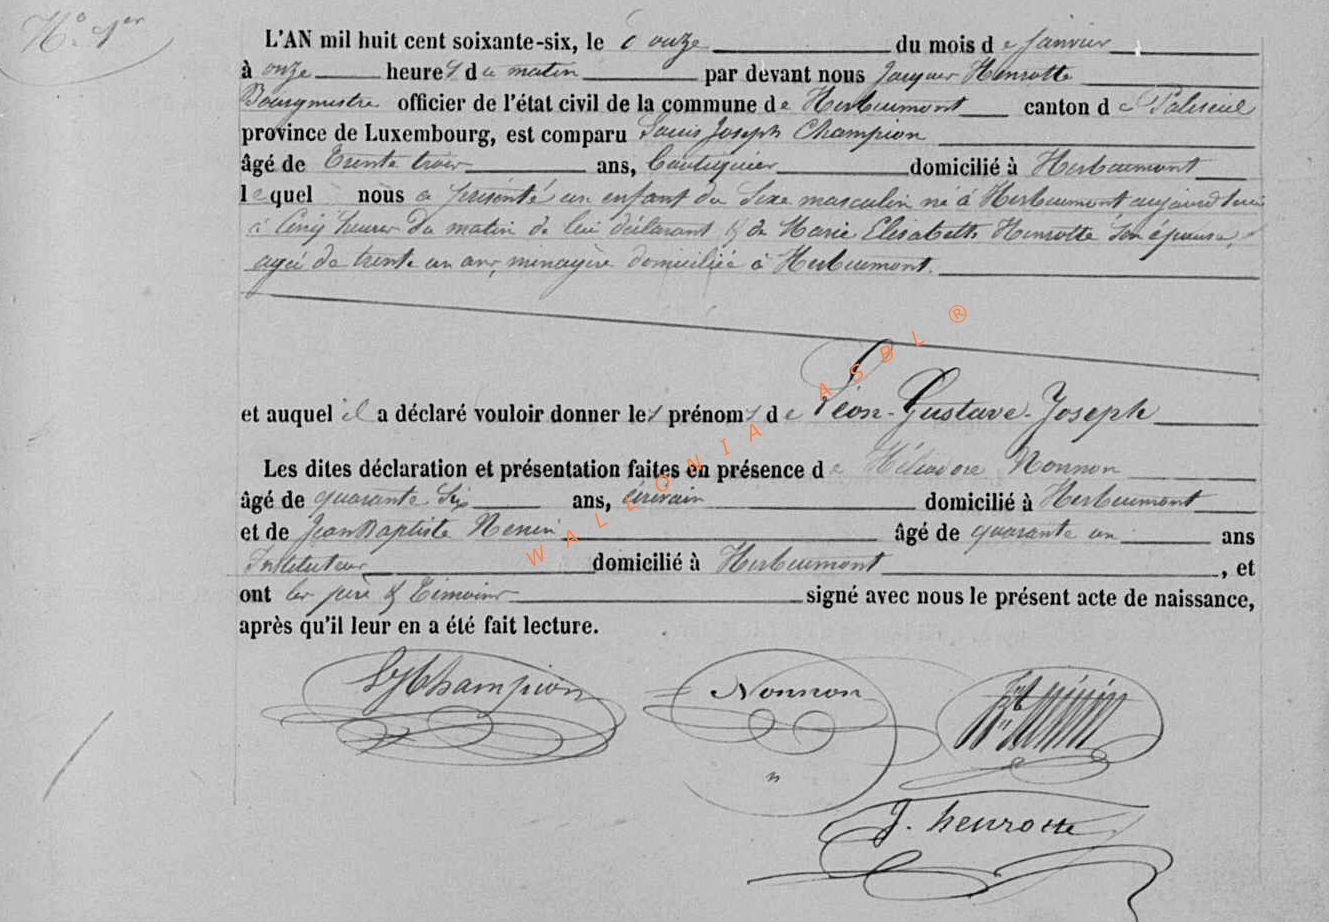 N° 1er
L'AN mil huit cent soixante-six, le onze du mois de Janvier
à onze heures du matin par devant nous Jacques Henrotte
Bourgmestre officier de l'état civil de la commune de Herbeumont canton de Paliseul
province de Luxembourg, est comparu Louis Joseph Champion
âgé de Trente trois ans, domicilié à Herbeumont
lequel nous a présenté un enfant du Sexe masculin né à Herbeumont aujourd'hui
à Cinq heures du matin de lui déclarant & de Marie Elisabeth Henrotte Son épouse,
agée de trente un ans, ménagère domiciliée à Herbeumont.
et auquel il a déclaré vouloir donner les prénoms de Léon-Gustave-Joseph
Les dites déclaration et présentation faites en présence de Héliodore Nonnon
âgé de quarante Six ans, écrivain domicilié à Herbeumont
et de Jean Baptiste Nenin âgé de quarante un ans
Instituteur domicilié à Herbeumont, et
ont les père & Témoins signé avec nous le présent acte de naissance,
après qu'il leur en a été fait lecture.
LJ Champion Nonnon JBte Ninin
J. henrotte
WALLONIA ASBL ®